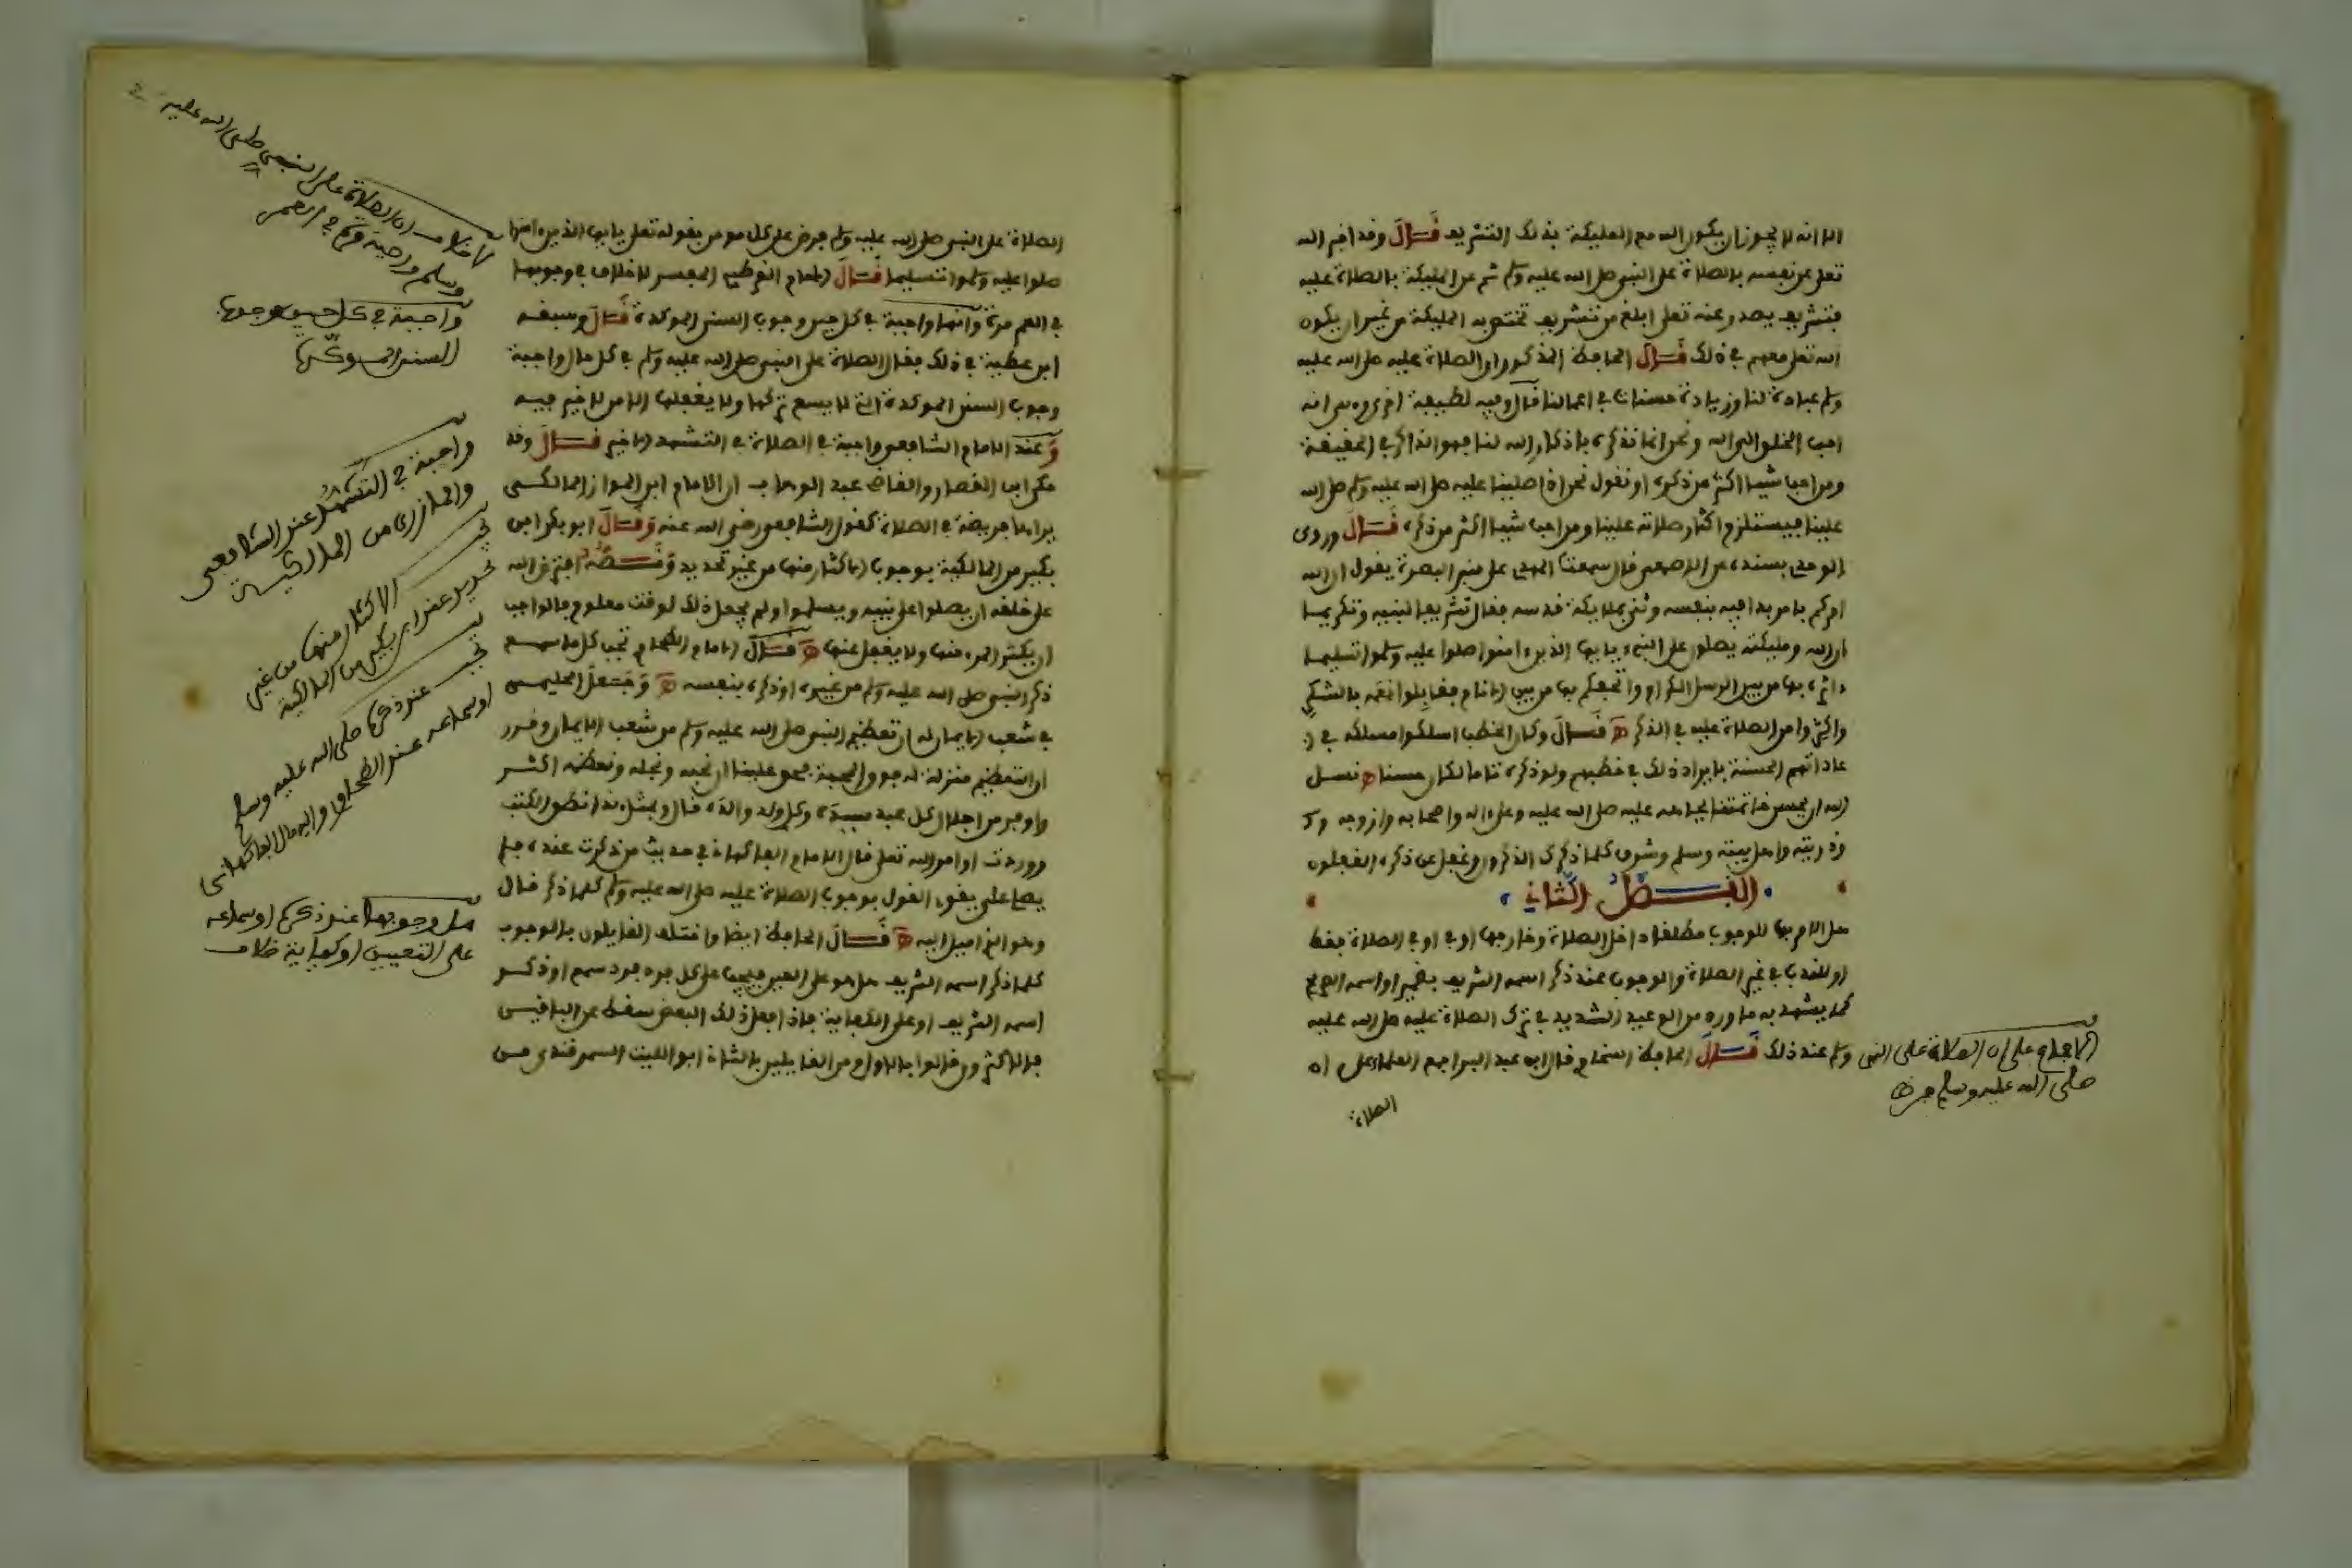 الا انه لا يجوز ان يكون الله مع المليكة بذلك التشريف قال وقد اخبر الله
تعلى عن نفسه بالصلاة على النبي صلى الله عليه وسلم ثم عن المليكة بالصلاة عليه
فتشريف يصدر عنه تعلى ابلغ من تشريف تختص به المليكة من غير ان يكون
الله تعلى معهم في ذلك قال الحافظ المذكور او الصلاة عليه صلى الله عليه
وسلم عبادة لنا وزيادة حسنات في اعمالنا قال وفيه لطيفة اخرى وهى انه
احب الخلق الى الله ونحن انما نذكره باذكار الله لنا فهو الذاكر في الحقيقة
ومن احب شيئا اكثر من ذكره او نقول نحن اذا صلينا عليه صلى الله عليه وسلم صلى الله
علينا فيستلزم اكثار صلاته علينا ومن احب شيئا اكثر من ذكره قال وروى
الوحدى بسنده عن الاصمعى قال سمعت المهدى على منبر البصرة يقول ان الله
امركم بامر بدا فيه بنفسه وثنى بملايكة قدسه فقال تشريفا لنبيه وتكريما
ان الله ومليكته يصلون على النبى يايها الذين ءامنوا صلوا عليه وسلموا تسليما
ءاثره بها من بين الرسل الكرام واتحفكم بها من بين الانام فقابلوا نعمه بالشكر
واكثروا من الصلاة عليه في الذكر قال وكان الخطبا اسلكوا مسلكه في
عاداتهم الحسنة بايراد ذلك في خطبهم ولو ذكره تاما لكان حسنا نسل
الله ان يحسن خاتمتنا بجاهه عليه صلى الله عليه وعلى اله واصحابه وازوجه
وذريته واهل بيته وسلم وشرف كلما ذكرك الذكرون وغفل عن ذكره الغفلون
الفصل الثاني
هل الامر بها للوجوب مطلقا داخل الصلاة وخارجها او في الصلاة فقط
او للندب في غير الصلاة والوجوب عند ذكر اسمه الشريف بضمير او اسمه الصريح
كما يشهد به ما ورد من الوعيد الشديد في ترك الصلاة عليه صلى الله عليه
وسلم عند ذلك قال الحافظ السخاوي قال ابن عبد البر اجمع العلماء على ان
الصلاة
الاجماع على ان الصلاة على النبى
صلى الله عليه وسلم فرض
الصلاة على النبي صلى الله عليه وسلم فرض على كل مومن بقوله تعلى يايها الذين ءامنوا
صلوا عليه وسلموا تسليما قال الامام القرطبي المفسر لا خلاف في وجوبها
في العمر مرة وانها واجبة في كل حين وجوب السنن الموكدة قال وسبقه
ابن عطية في ذلك فقال الصلاة على النبي صلى الله عليه وسلم في كل حال واجبة
وجوب السنن الموكدة التي لا يسع تركها ولا يغفلها الا من لا خير فيه
وعند الامام الشافعى واجبة في الصلاة في التشهد الاخير قال وقد
حكى ابن القصار والقاضى عبد الوهاب ان الامام ابن المواز المالكى
يراها فريضة في الصلاة كقول الشافعى رضى الله عنه وقال ابو بكر ابن
بكير من المالكية بوجوب الاكثار منها من غير تحديد ونصه افترض الله
على خلقه ان يصلوا على نبيه ويسلموا ولم يجعل ذلك لوقت معلوم فالواجب
ان يكثر المرء منها ولا يغفل عنها قال الامام الطحاوى تجب كلما سمع
ذكر النبي صلى الله عليه وسلم من غيره او ذكره بنفسه وجعل الحليمى
في شعب الايمان له ان تعظيم النبي صلى الله عليه وسلم من شعب الايمان وقرر
ان التعظيم منزلة فوق المحبة فحق علينا ان نحبه ونجله ونعظمه اكثر
واوفر من اجلال كل عبد سيده وكل ولد والده قال وبمثل هذا نطق الكتب
ووردت اوامر الله تعلى قال الامام الفاكهانى في حديث من ذكرت عنده فلم
يصل على يقوى القول بوجوب الصلاة عليه صلى الله عليه وسلم كلما ذكر قال
وهو الذى اميل اليه قال الحافظ ايضا واختلف القايلون بالوجوب
كلما ذكر اسمه الشريف هل هو على العين فيجب على كل فرد فرد سمع او ذكر
اسمه الشريف او على الكفاية فاذا فعل ذلك البعض سقط عن الباقين
فالاكثرون قالوا بالاول ومن القايلين بالثاني ابو الليث السمرقندى من
لا خلاف ان الصلاة على النبى صلى الله عليه
وسلم واجبة مرة في العمر
واجبة في كل حين وجوب
السنن الموكدة
واجبة في التشهد عند الشافعى
والمازرى من المالكية
تجب الاكثار منها من غير
تحديد عند ابن بكير من المالكية
تجب عند ذكره صلى الله عليه وسلم
او سماعه عند الطحاوى والفاكهانى
هل وجوبها عند ذكره او سماعه
على التعيين او كفاية خلاف